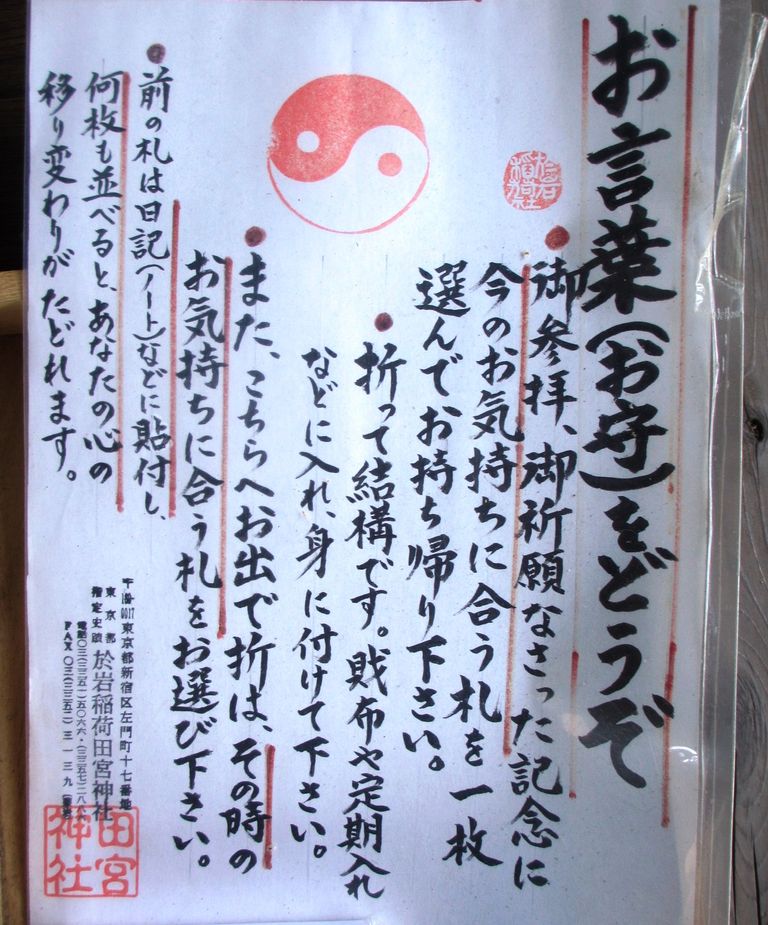 お言葉(お守)をどうぞ
御参拝、御祈願なさった記念に
今のお気持ちに合う札を一枚
選んでお持ち帰り下さい。
折って結構です。財布や定期入れ
などに入れ、身に付けて下さい。
また、こちらへお出で折は、その時の
お気持ちに合う札をお選び下さい。
前の札は日記(ノート)などに貼付し、
何枚も並べると、あなたの心の
移り変わりがたどれます。
東京都新宿区左門町十七番地
東京都
指定史蹟
於岩稲荷田宮神社
田宮
神社